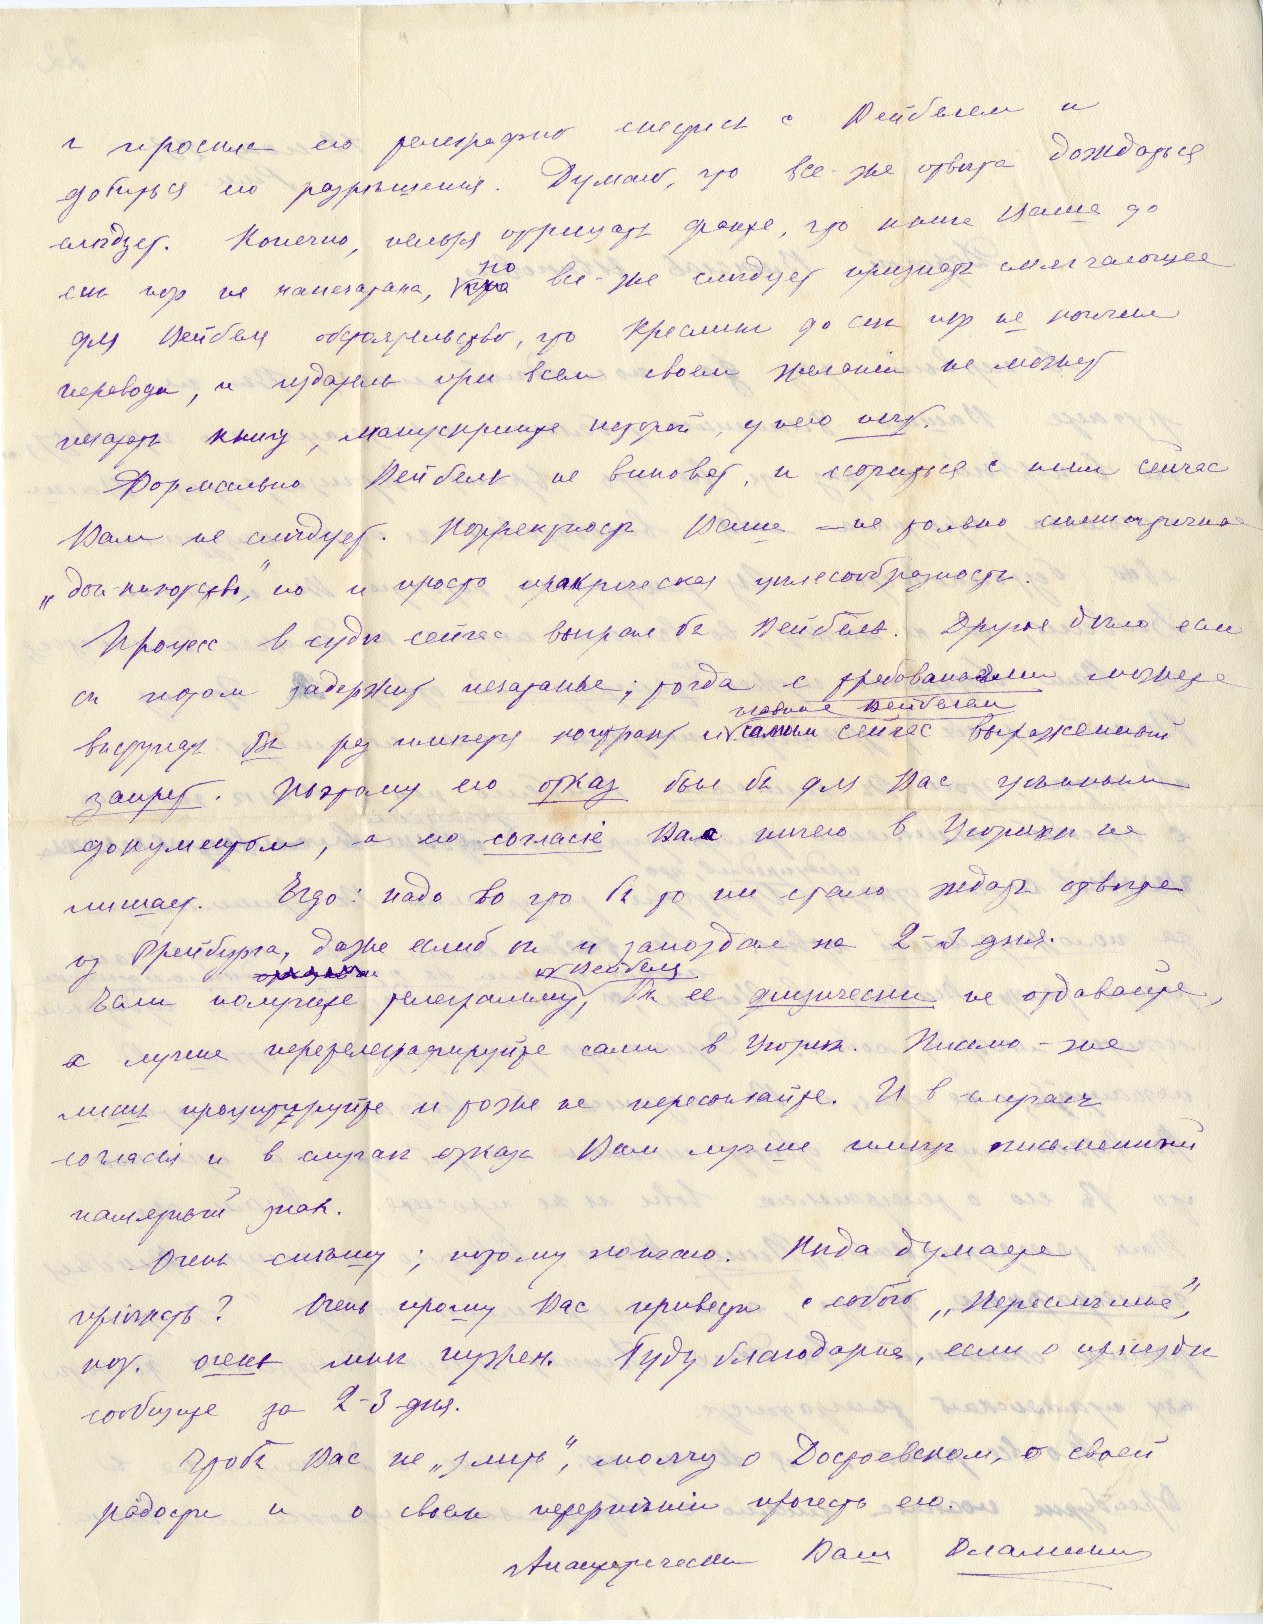 и просила его телеграфно снестись с Вейбелем и
добиться его разрѣшения. Думаю, что все-же отвѣта дождаться
слѣдует. Конечно, нельзя отрицать факта, что книга Ваша до
сих пор не напечатана, но все-же слѣдует признать смягчающее
для Вейбеля обстоятельство, что Креслинг до сих пор не кончил
перевода, и издатель при всем своем желанiи не может
печатать книгу, манускрипта которой у него нѣт.
Формально Вейбель не виноват, и ссориться с ним сейчас
Вам не слѣдует. Корректность Ваша – не только симпатичное
„дон-кихотство", но и просто практическая цѣлесообразность.
Процесс в судѣ сейчас выиграл бы Вейбель. Другое дѣло если
он потом задержит печатанье; тогда с требованиями можете
выступать Вы раз имѣете контракт и самим Вейбелем сейчас выраженный
запрет. Поэтому его отказ был бы для Вас цѣнным
документом, а его согласiе Вас ничего в Цюрихѣ не
лишает. Ergo: надо во что бы то ни стало ждать отвѣта
из Фрейбурга, даже если б он и запоздал на 2-3 дня.
Если получите телеграмму от Вейбеля, Вы ее физически не отдавайте,
а лучше перетелеграфируйте сами в Цюрих. Письмо-же
лишь процитируйте и тоже не пересылайте. И в случаѣ
согласiя и в случаѣ отказа Вам лучше имѣть письменный
памятный знак.
Очень спѣшу; потому кончаю. Когда думаете
прiѣхать? Очень прошу Вас привезти с собою „Переселенiе",
кот. очень мнѣ нужен. Буду благодарна, если о прiѣздѣ
сообщите за 2-3 дня.
Чтобы Вас не „злить", молчу о Достоевском, о своей
радости и о своем нетерпѣнiи прочесть его.
Ваш